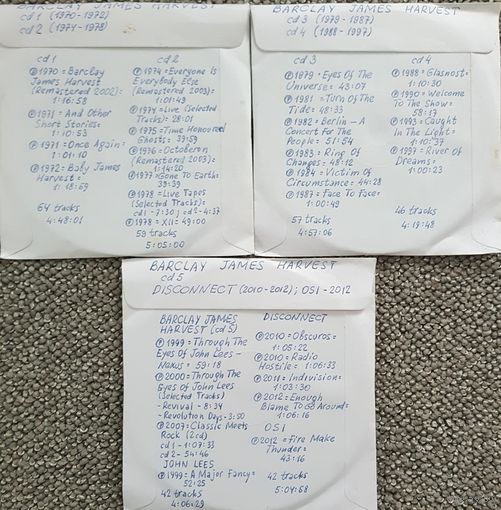 BARCLAY JAMES HARVEST
cd 1 (1970-1972)
cd 2 (1974-1978)
cd 1
℗ 1970 = Barclay
James Harvest
(Remastered 2002):
1:16:58
℗ 1971 = And Other
Short Stories:
1:10:53
℗ 1971 = Once Again:
1:01:10
℗ 1972 = Baby James
Harvest =
1:18:59
64 tracks
4:48:01
cd 2
℗ 1974 = Everyone Is
Everybody Else
(Remastered 2003):
1:01:49
℗ 1974 = Live (Selected
Tracks): 28:01
℗ 1975 = Time Honoured
Ghosts: 39:59
℗ 1976 = Octoberon
(Remastered 2003):
1:14:20
℗ 1977 = Gone To Earth:
39:39
℗ 1978 = Live Tapes
(Selected Tracks):
cd1 - 7:30; cd2 - 4:37
℗ 1978 = XII = 49:00
59 tracks
5:05:00
BARCLAY JAMES HARVEST
cd 3 (1979-1987)
cd 4 (1988-1997)
cd 3
℗ 1979 = Eyes Of The
Universe: 43:07
℗ 1981 = Turn Of The
Tide: 48:33
℗ 1982 = Berlin - A
Concert For The
People: 51:54
℗ 1983 = Ring Of
Changes: 48:12
℗ 1984 = Victim Of
Circumstance: 44:28
℗ 1987 = Face To Face:
1:00:49
57 tracks
4:57:06
cd 4
℗ 1988 = Glasnost:
1:10:30
℗ 1990 = Welcome
To The Show:
58:17
℗ 1993 = Caught
In The Light:
1:10:37
℗ 1997 = River Of
Dreams:
1:00:23
46 tracks
4:19:48
BARCLAY JAMES HARVEST
cd 5
DISCONNECT (2010-2012); OSI-2012
BARCLAY JAMES
HARVEST (cd 5)
℗ 1999 = Through The
Eyes Of John Lees -
Nexus = 59:18
℗ 2000 = Through The
Eyes Of John Lees
(Selected Tracks)
- Revival - 8:34
- Revolution Days - 3:50
℗ 2007 = Classic Meets
Rock (2cd)
cd 1 - 1:07:33
cd 2 - 54:46
JOHN LEES
℗ 1999 = A Major Fancy =
52:25
42 tracks
4:06:29
DISCONNECT
℗ 2010 = Obscuros:
1:05:22
℗ 2010 = Radio
Hostile = 1:06:33
℗ 2011 = Indivision:
1:03:30
℗ 2012 = Enough
Blame To Go Around =
1:06:16
OSI
℗ 2012 = Fire Make
Thunder =
43:16
42 tracks
5:04:58